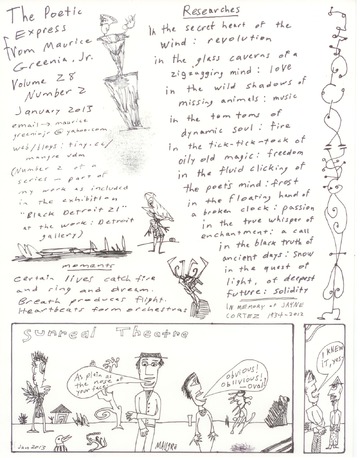 The Poetic
Express
from Maurice
Greenia, Jr.
Volume 28
Number 2
January 2013
email → maurice
greeniajr@yahoo.com
web/blogs: tiny.cc/
(Number 2 of a
series — part of
my work as included
in the exhibition
"Black Detroit 21"
at the work: Detroit
gallery)
moments
Certain lives catch fire
and ring and dream.
Breath produces flight.
Heartbeats form orchestras
Researches
In the secret heart of the
wind: revolution
in the glass caverns of a
zigzagging mind: love
in the wild shadows of
missing animals: music
in the tom toms of
dynamic soul: fire
in the tick-tick-tock of
oily old magic: freedom
in the fluid clicking of
the poet's mind: frost
in the floating hand of
a broken clock: passion
in the true whisper of
enchantment: a call
in the black truth of
ancient days: snow
in the quest of
light, of deepest
future: solidity
IN MEMORY of JAYNE
CORTEZ 1934-2012
Surreal Theatre
As plain as
the nose of
your face!
obvious!
oblivious!
oval!
I KNEW
IT, yes!
Jan 2013